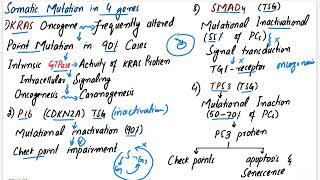 Somatic Mutation in 4 genes
1) KRAS Oncogene → frequently altered
Point Mutation in 90% Cases
Intrinsic GTPase → Activity of KRAS Protein
Intracellular Signaling
Oncogenesis → Carcinogenesis
2) P16 (CDKN2A) TSG (inactivation)
Mutational inactivation (90%)
Check point impairment
S
G2
3) SMAD4 (TSG)
Mutational Inactivational
(55% of PCs)
Signal transduction
TGF-receptor
oncogenesis
4) TP53 (TSG)
Mutational Inaction
(50-70% of PCs)
P53 protien
Check points
apoptosis &
Senescence